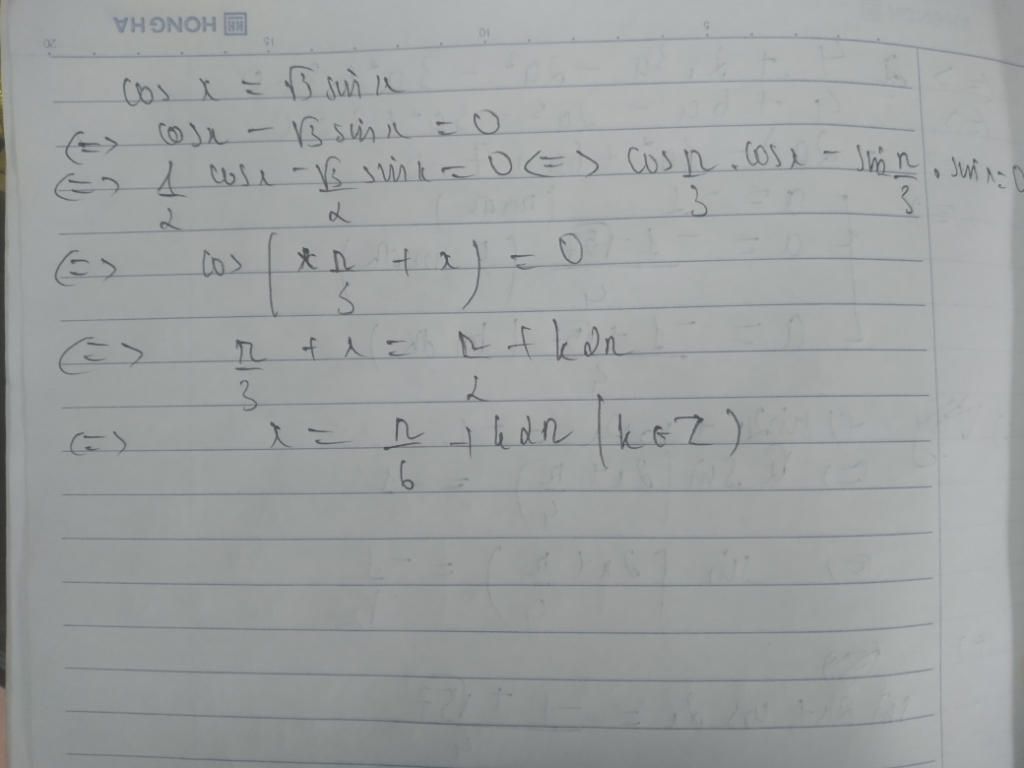 HONG HA
20 15 10 5
cos x = √3 sin x
<=> cosx - √3 sinx = 0
<=> 1/2 cosx - √3/2 sinx = 0 <=> cos π/3 . cosx - sin π/3 . sinx = 0
<=> cos (π/3 + x) = 0
<=> π/3 + x = π/2 + k2π
<=> x = π/6 + k2π (k ∈ Z)